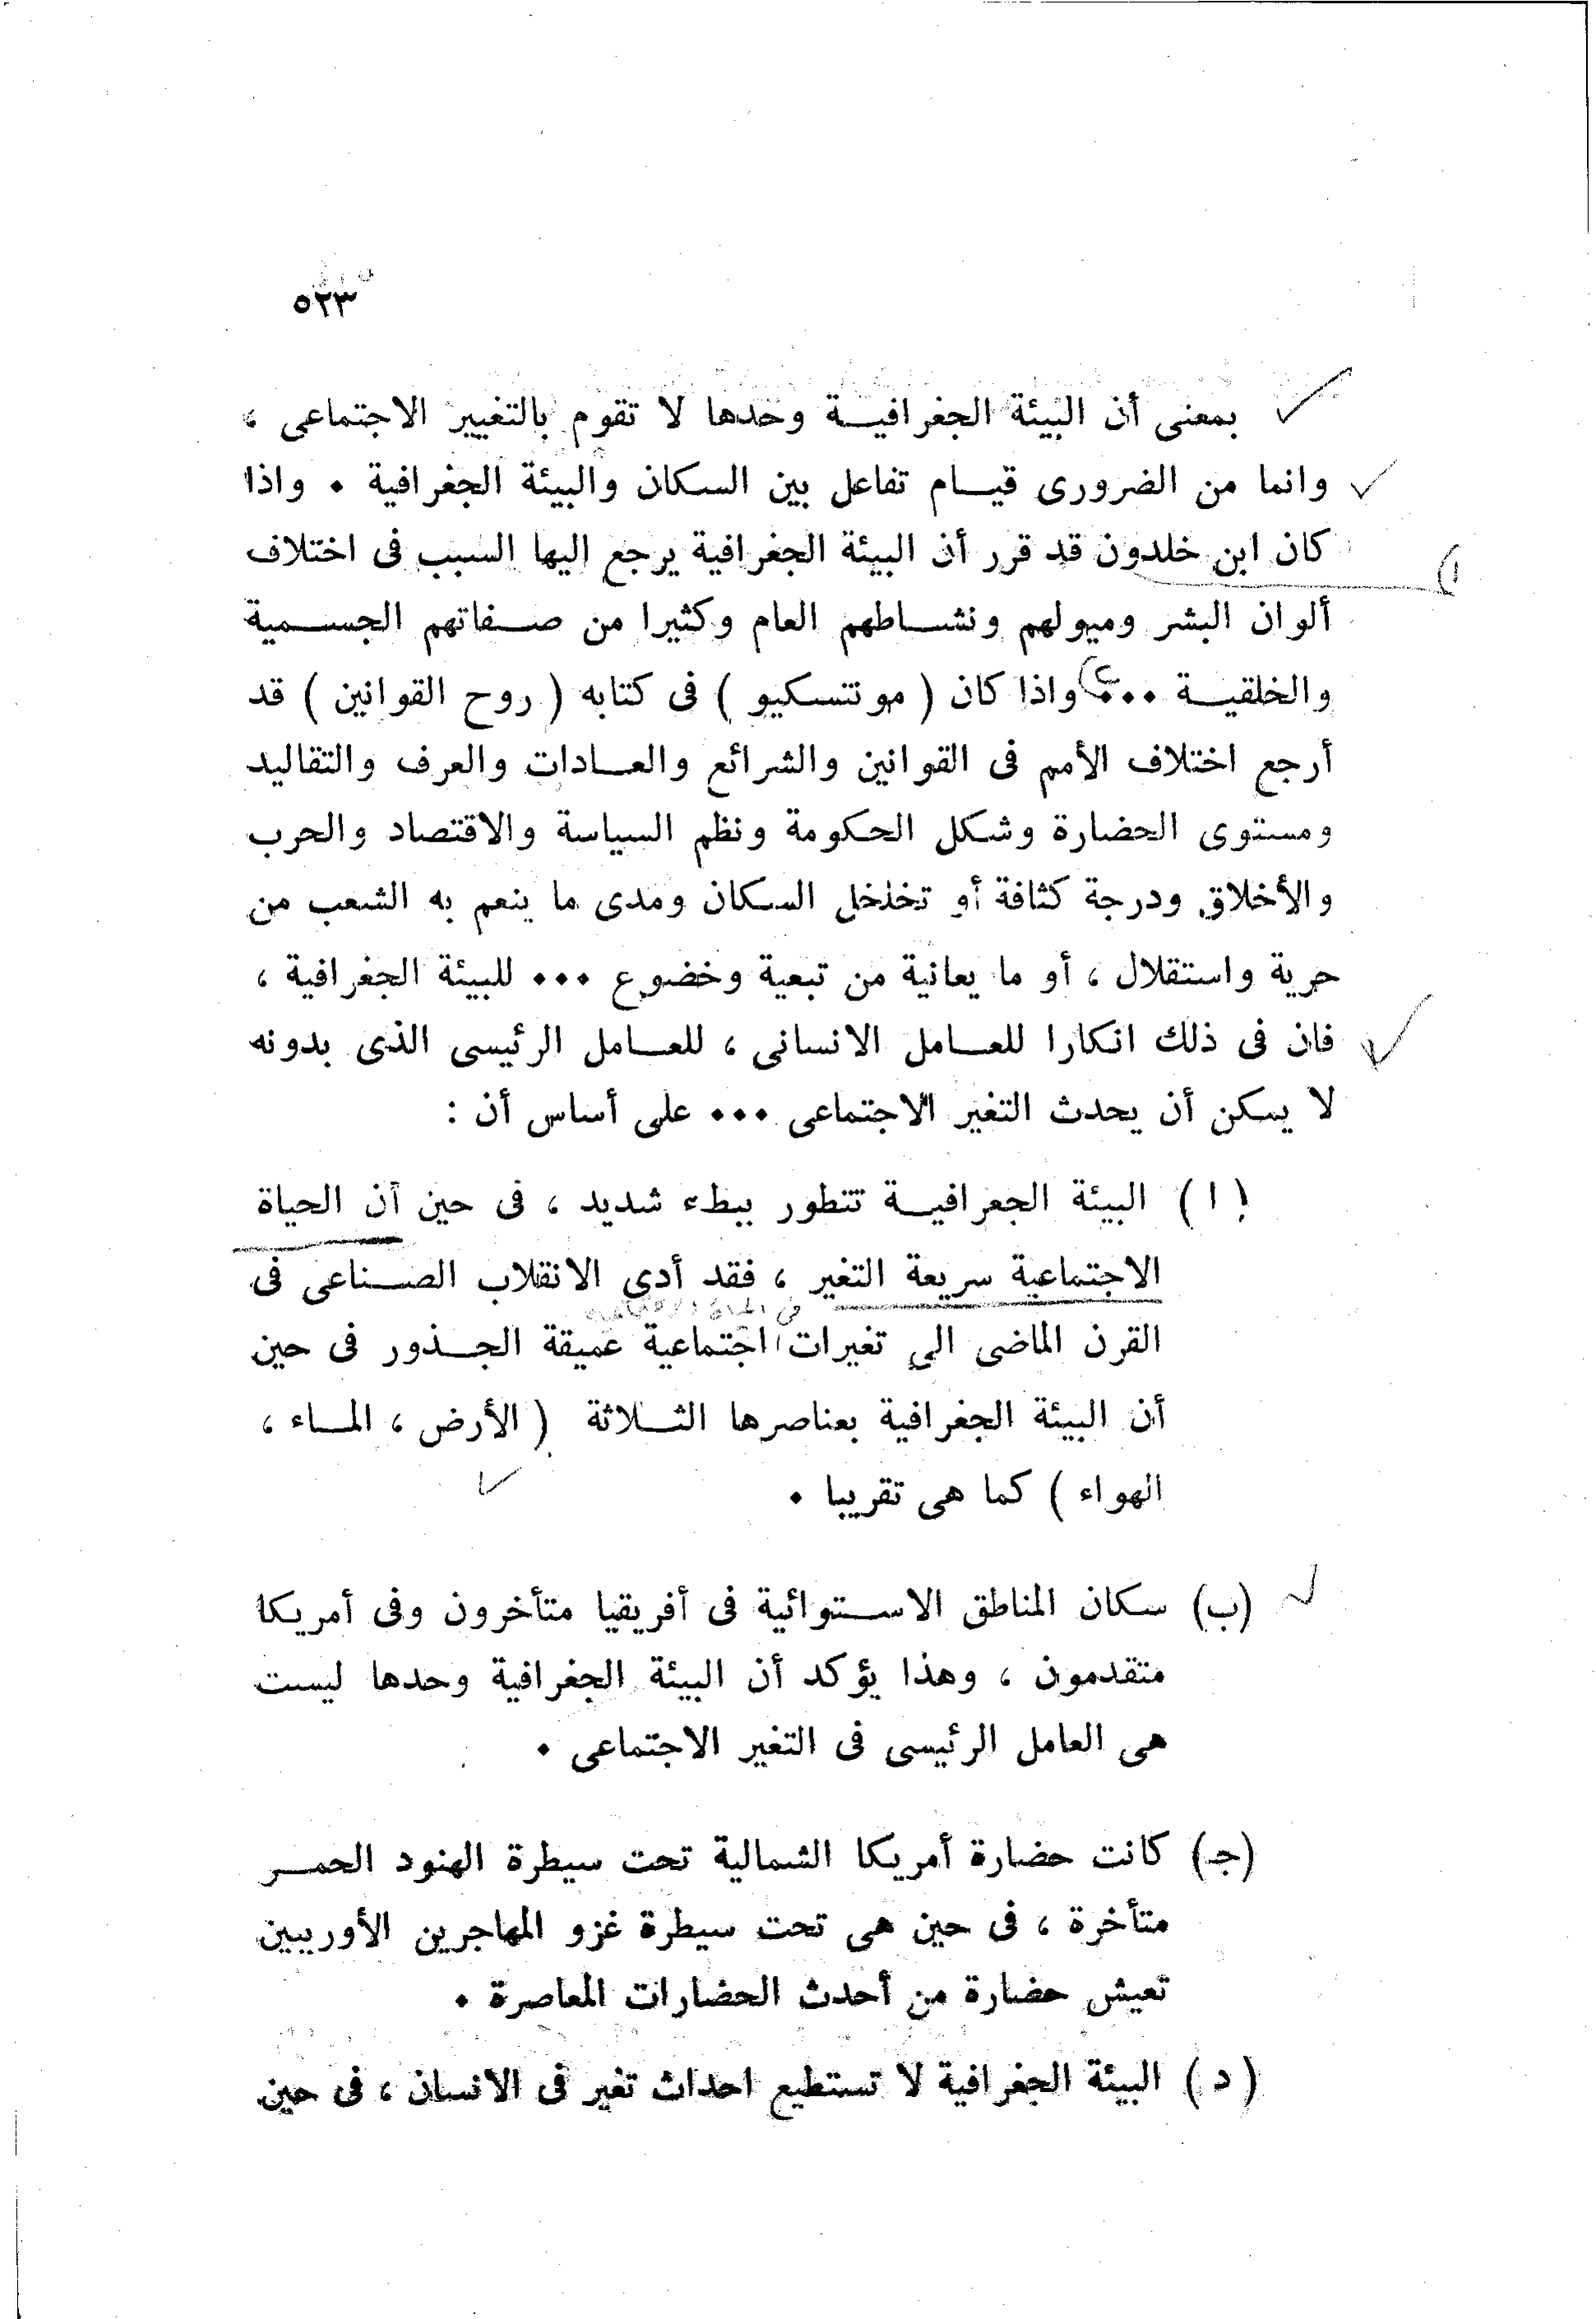 ٥٢٣
بمعنى أن البيئة الجغرافيـــة وحدها لا تقوم بالتغيير الاجتماعى ،
وانما من الضرورى قيـــام تفاعل بين السكان والبيئة الجغرافية • واذا
كان ابن خلدون قد قرر أن البيئة الجغرافية يرجع اليها السبب فى اختلاف
ألوان البشر وميولهم ونشـــاطهم العام وكثيرا من صـــفاتهم الجســـمية
والخلقيـــة ••• واذا كان ( مونتسكيو ) فى كتابه ( روح القوانين ) قد
أرجع اختلاف الأمم فى القوانين والشرائع والعـــادات والعرف والتقاليد
ومستوى الحضارة وشكل الحكومة ونظم السياسة والاقتصاد والحرب
والأخلاق ودرجة كثافة أو تخلخل السكان ومدى ما ينعم به الشعب من
حرية واستقلال ، أو ما يعانية من تبعية وخضوع ••• للبيئة الجغرافية ،
فان فى ذلك انكارا للعـــامل الانسانى ، للعـــامل الرئيسى الذى بدونه
لا يمكن أن يحدث التغير الاجتماعى ••• على أساس أن :
( ا ) البيئة الجغرافيـــة تتطور ببطء شديد ، فى حين أن الحياة
الاجتماعية سريعة التغير ، فقد أدى الانقلاب الصـــناعى فى
القرن الماضى الى تغيرات اجتماعية عميقة الجـــذور فى حين
أن البيئة الجغرافية بعناصرها الثـــلاثة ( الأرض ، المـــاء ،
الهواء ) كما هى تقريبا •
(ب) سكان المناطق الاســـتوائية فى أفريقيا متأخرون وفى أمريكا
متقدمون ، وهذا يؤكد أن البيئة الجغرافية وحدها ليست
هى العامل الرئيسى فى التغير الاجتماعى •
(جـ) كانت حضارة أمريكا الشمالية تحت سيطرة الهنود الحمـــر
متأخرة ، فى حين هى تحت سيطرة غزو المهاجرين الأوربيين
تعيش حضارة من أحدث الحضارات المعاصرة •
( د ) البيئة الجغرافية لا تستطيع احداث تغير فى الانسان ، فى حين